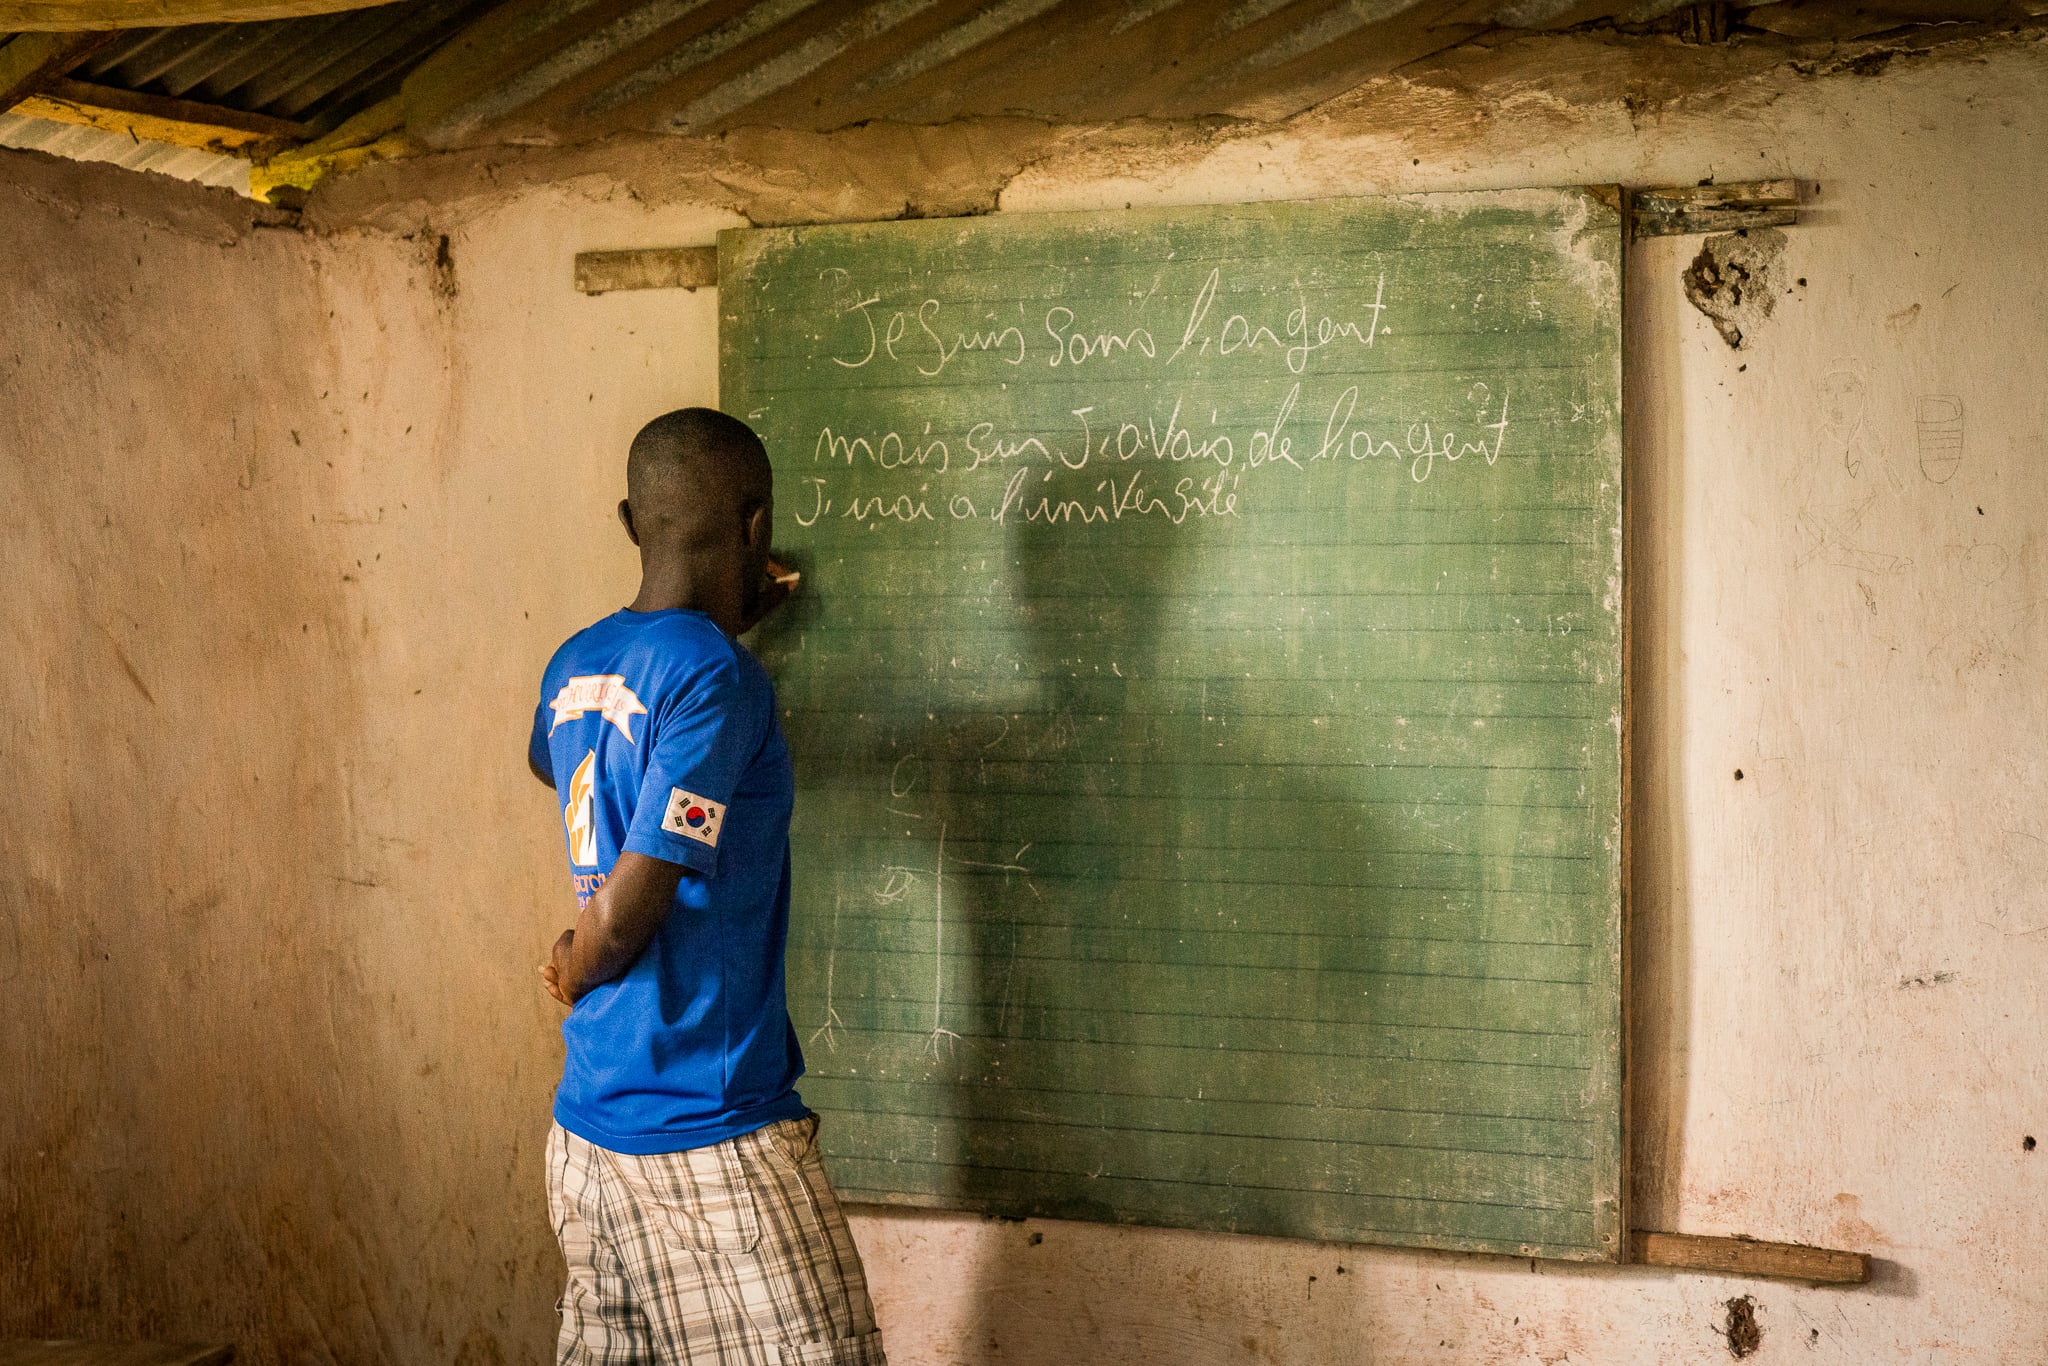 Je Suis sans l'argent.
mais sur J'avais de l'argent
J'irai a l'université